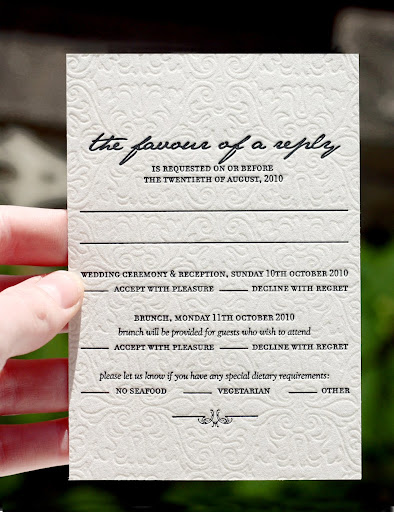 the favour of a reply
IS REQUESTED ON OR BEFORE
THE TWENTIETH OF AUGUST, 2010
WEDDING CEREMONY & RECEPTION, SUNDAY 10TH OCTOBER 2010
ACCEPT WITH PLEASURE DECLINE WITH REGRET
BRUNCH, MONDAY 11TH OCTOBER 2010
brunch will be provided for guests who wish to attend
ACCEPT WITH PLEASURE DECLINE WITH REGRET
please let us know if you have any special dietary requirements:
NO SEAFOOD VEGETARIAN OTHER